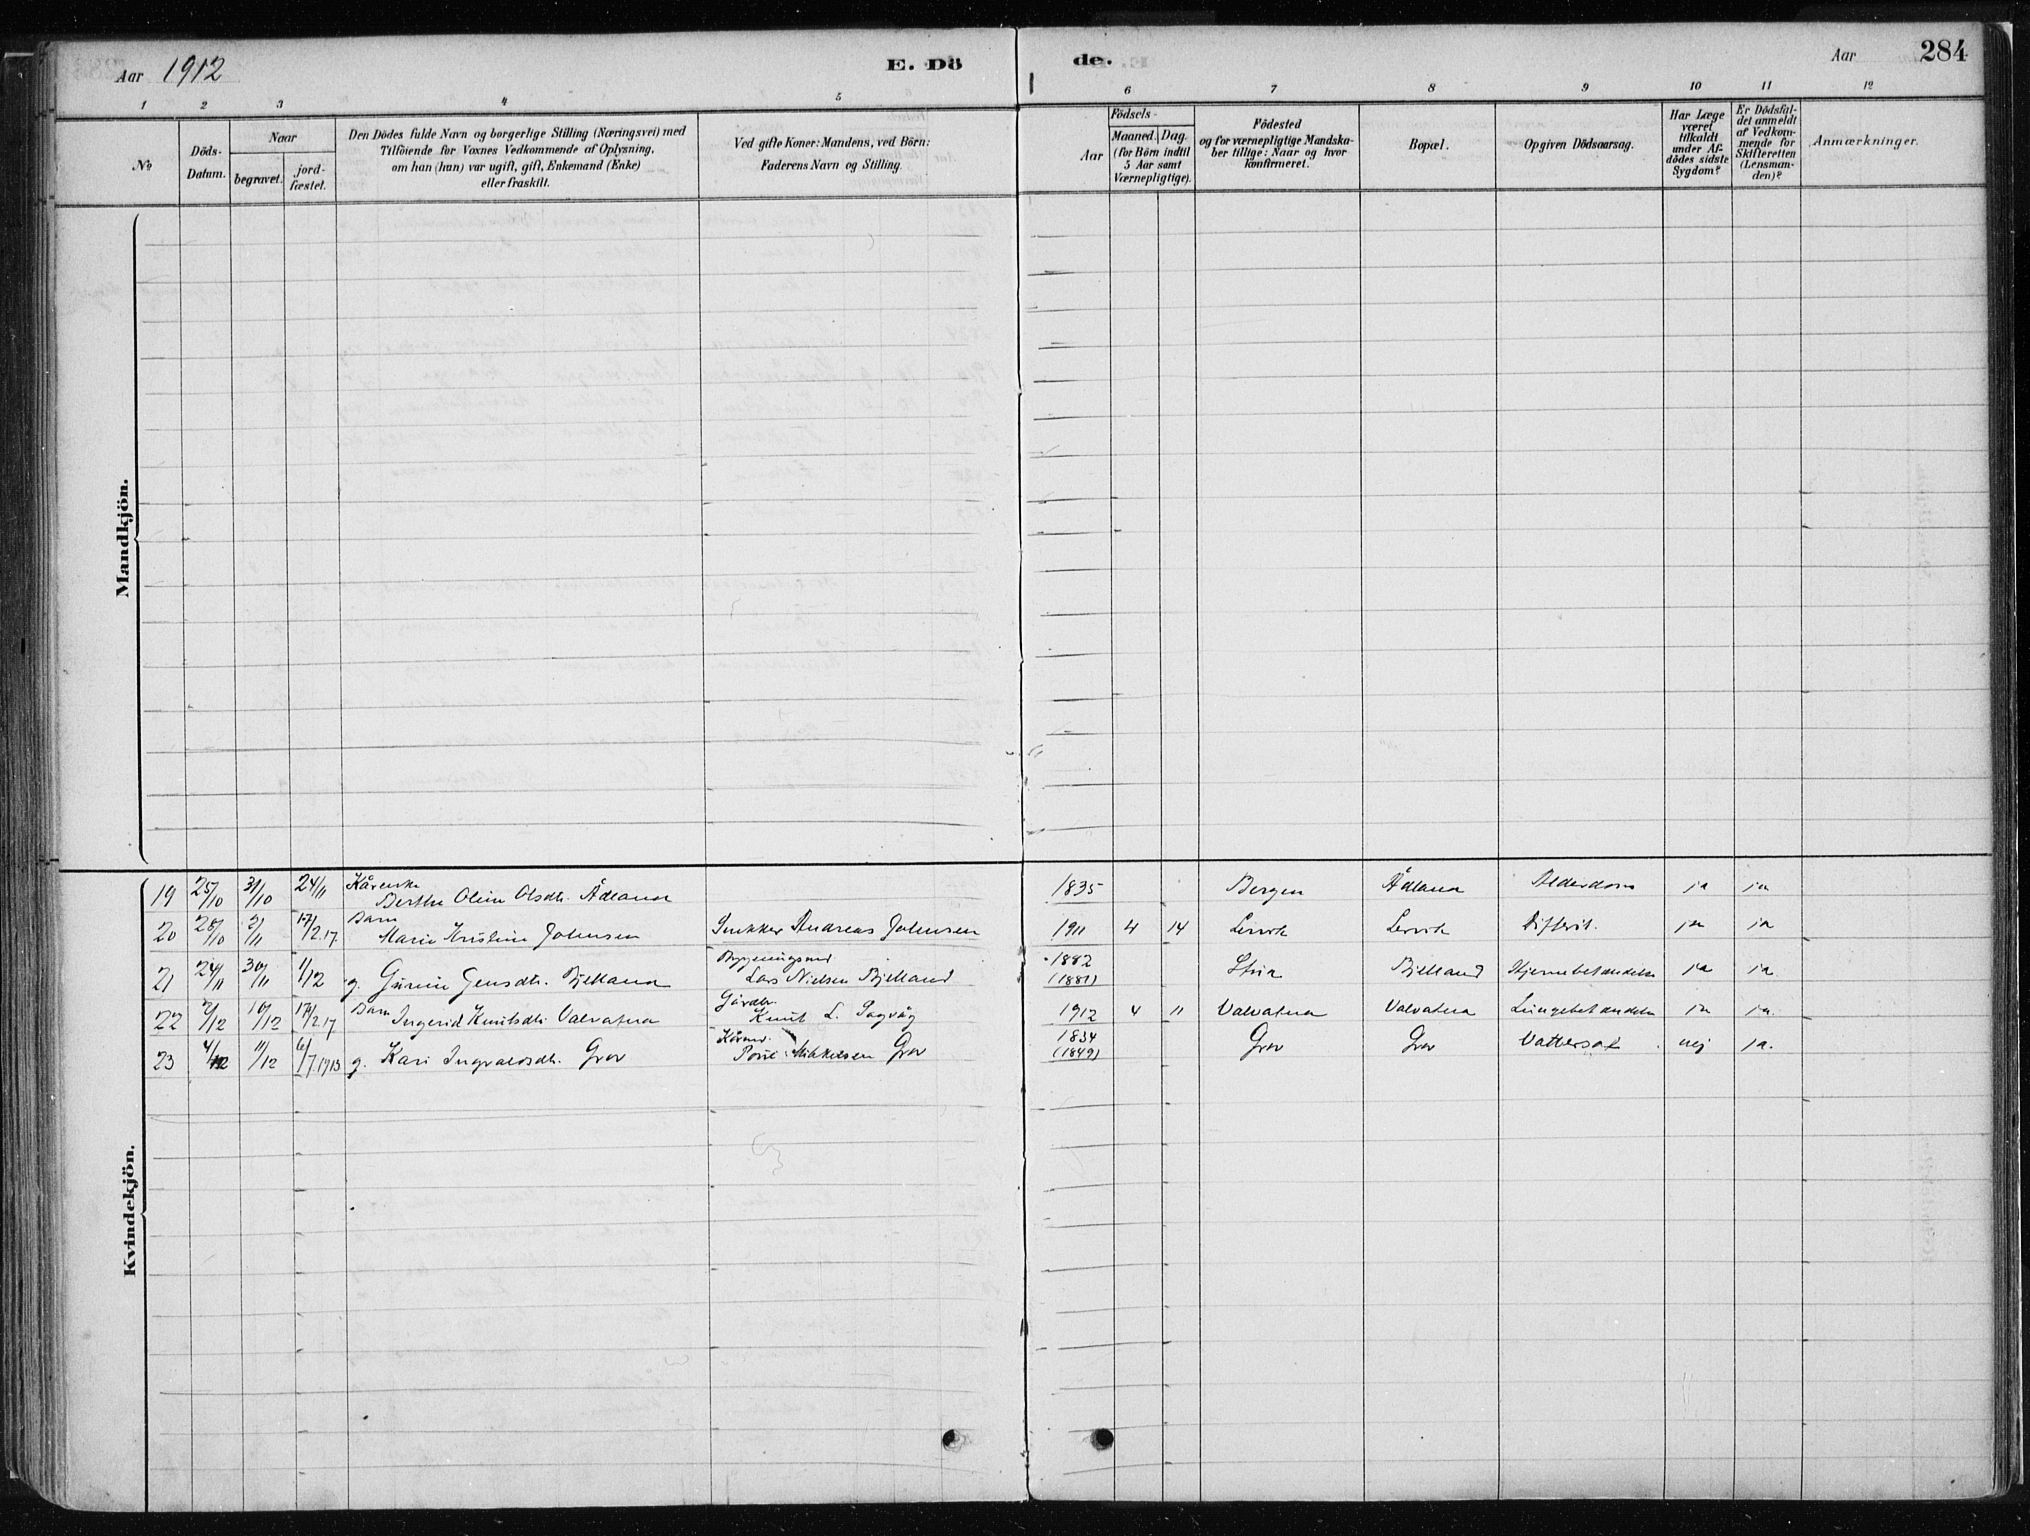 Aar 1912
E. Dö
de.
Aar
284
1 2 3 4 5 6 7 8 9 10 11 12
No
Döds-Datum.
Naar
begravet.
jord-fæstet.
Den Dödes fulde Navn og borgerlige Stilling (Næringsvei) med
Tilföiende for Voxnes Vedkommende af Oplysning,
om han (hun) var ugift, gift, Enkemand (Enke)
eller fraskilt.
Ved gifte Koner: Mandens, ved Börn:
Faderens Navn og Stilling.
Aar
Födsels-
Maaned. Dag.
(for Börn indtil
5 Aar samt
Værnepligtige).
Födested
og for værnepligtige Mandska-
ber tillige: Naar og hvor
konfirmeret.
Bopæl.
Opgiven Dödsaarsag.
Har Læge
været
tilkaldt
under Af-
dödes sidste
Sygdom?
Er Dödsfal-
det anmeldt
af Vedkom-
mende for
Skifteretten
(Lensman-
den)?
Anmærkninger.
Mandkjön.
Kvindekjön.
19 25/10 31/10 24/11 Kårenke
Berthe Oline Olsdtr. Ådland 1835 Bergen Ådland Alderdom ja ja
20 28/10 2/11 17/2.17. Barn
Marie Kristine Johnsen Snekker Andreas Johnsen 1911 4 14 Lervik Lervik Difterit. ja ja
21 24/11 30/11 1/12 g. Gurine Jensdtr. Bjelland
Lars Nielsen Bjelland 1882
(1881) Bjelland Hjernebetændelse ja ja
22 2/12 10/12 17/2.17 Barn
Ingerid Knutsdtr. Valvatna Gårdbr.
Knut L. Sagvåg 1912 4 11 Valvatna Valvatna Lungebetændelse ja ja.
23 4/12 11/12 6/7.1913 g. Kari Ingvaldsdtr. Grov Kårmd.
Poul Mikkelsen Grov 1834
(1849) Grov Grov Vattersot nej ja.